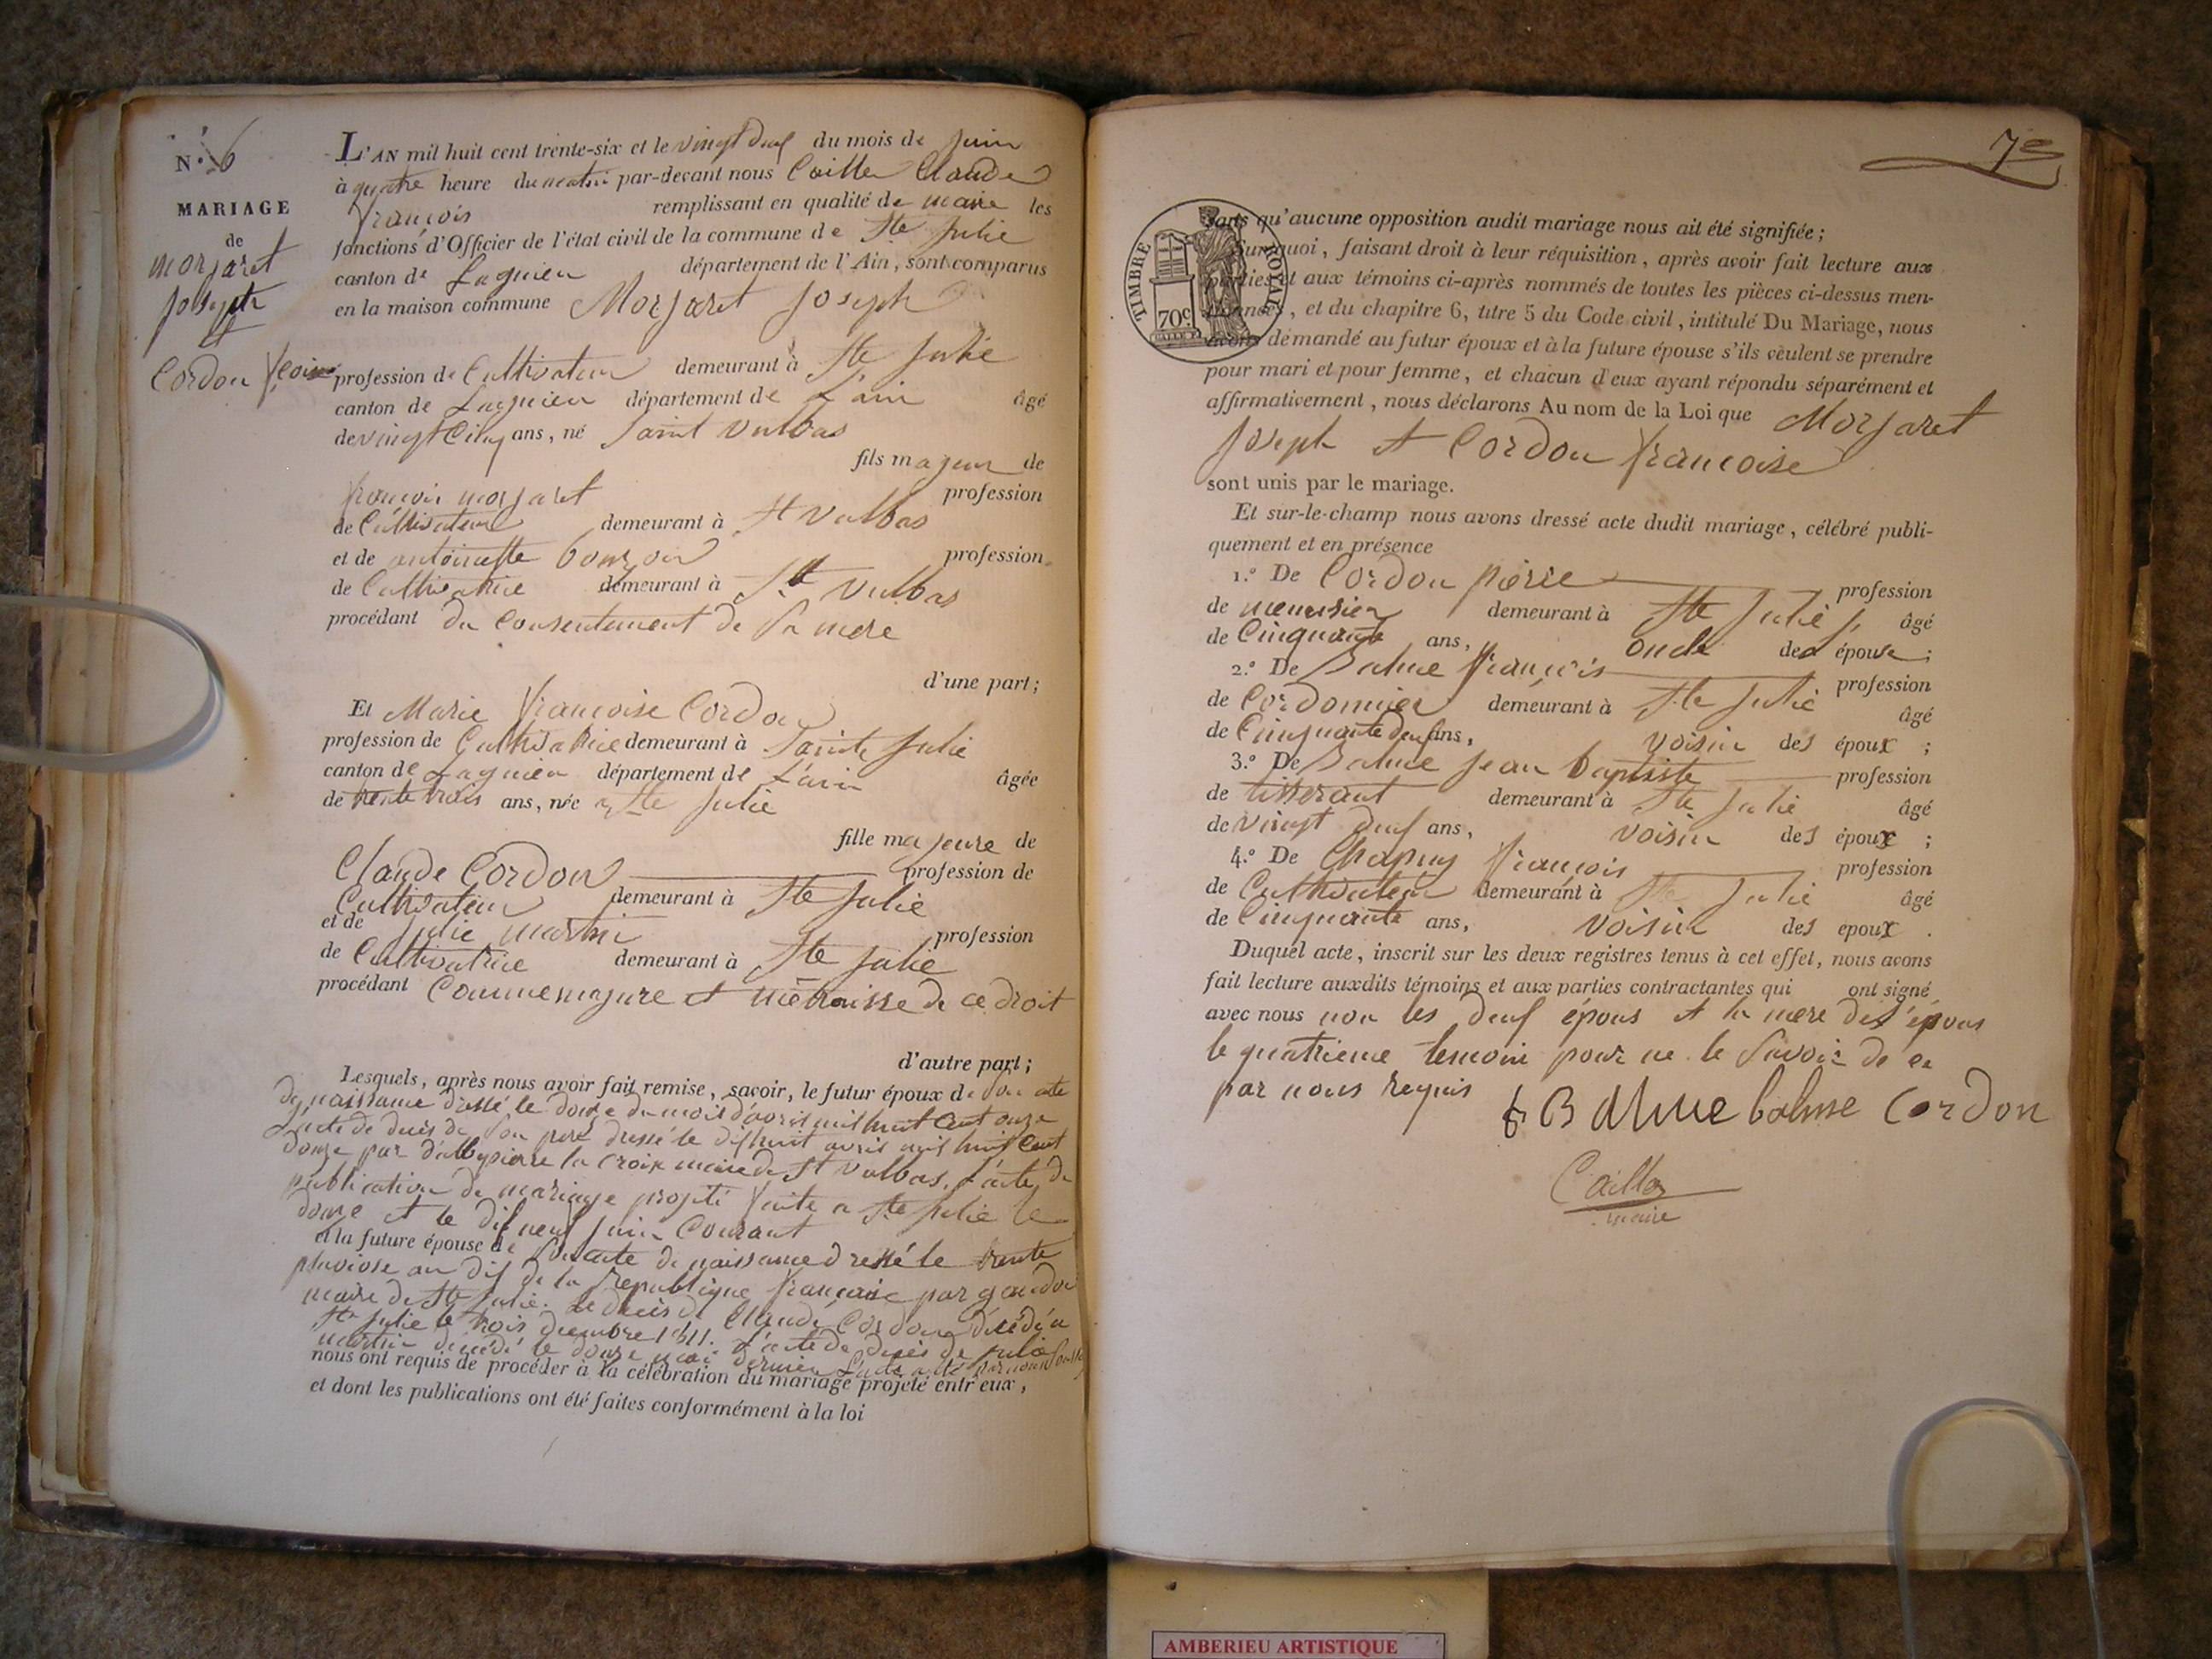 N.° 6
MARIAGE
de
morjaret
joseph
et
Cordon fcoise
L'AN mil huit cent trente-six et le vingt deuf du mois de juin
à quatre heure du matin par-devant nous Caille Claude
françois remplissant en qualité de maire les
fonctions d'Officier de l'état civil de la commune de Ste Julie
canton de Lagnieu département de l'Ain, sont comparus
en la maison commune Morjaret Joseph
profession de Cultivateur demeurant à Ste Julie
canton de Lagnieu département de L'ain âgé
de vingt Cinq ans, né Saint Vulbas
fils majeur de
françois morjaret profession
de Cultivateur demeurant à St Vulbas
et de antoinette profession
de Cultivatrice demeurant à St Vulbas
procédant du Consentement de Sa mere
d'une part;
Et Marie françoise Cordon
profession de Cultivatrice demeurant à Sainte Julie
canton de Lagnieu département de L'ain âgée
de trente trois ans, née a Ste Julie
fille majeure de
Claude Cordon profession de
Cultivateur demeurant à Ste Julie
et de Julie martin profession
de Cultivatrice demeurant à Ste Julie
procédant Comme majure et metraisse de ce droit
d'autre part;
Lesquels, après nous avoir fait remise, savoir, le futur époux de Son acte
de naissance dressé le douze du mois d'avril mil huit Cent onze
L'acte de deces de Son pere dressé le dishuit avril mil huit Cent
douze par pierre la Croix maire de St Vulbas. L'acte de
publication de mariage projeté faite a Ste Julie le
douze et le dif neuf juin Courant
et la future épouse de Son acte de naissance dressé le trente
pluviose an dif de la republique française par
maire de Ste Julie. Le deces de Claude Cordon décédé a
Ste Julie le trois decembre 1811. L'acte de deces de Julie
martin décédé le douze mai dernier L'acte a été par nous
nous ont requis de procéder à la célébration du mariage projeté entr'eux,
et dont les publications ont été faites conformément à la loi
7e
TIMBRE ROYAL
70c
sans qu'aucune opposition audit mariage nous ait été signifiée;
Surquoi, faisant droit à leur réquisition, après avoir fait lecture aux
parties et aux témoins ci-après nommés de toutes les pièces ci-dessus men-
tionnées, et du chapitre 6, titre 5 du Code civil, intitulé Du Mariage, nous
avons demandé au futur époux et à la future épouse s'ils veulent se prendre
pour mari et pour femme, et chacun d'eux ayant répondu séparément et
affirmativement, nous déclarons Au nom de la Loi que Morjaret
Joseph et Cordon françoise
sont unis par le mariage.
Et sur-le-champ nous avons dressé acte dudit mariage, célébré publi-
quement et en présence
1.° De Cordon pierre profession
de menusier demeurant à Ste Julie âgé
de Cinquante ans, oncle de épouse;
2.° De Balme françois profession
de Cordonnier demeurant à Ste Julie âgé
de Cinquante deuf ans, voisin des époux;
3.° De Balme jean baptiste profession
de tisserant demeurant à Ste Julie âgé
de vingt deuf ans, voisin des époux;
4.° De Chapuy françois profession
de Cultivateur demeurant à Ste Julie âgé
de Cinquante ans, voisin des epoux.
Duquel acte, inscrit sur les deux registres tenus à cet effet, nous avons
fait lecture auxdits témoins et aux parties contractantes qui ont signé
avec nous non les deuf épous et la mere de l'épous
le quatrieme temoin pour ne le Savoir de ce
par nous requis
Balme balme Cordon
Caille
maire
AMBERIEU ARTISTIQUE